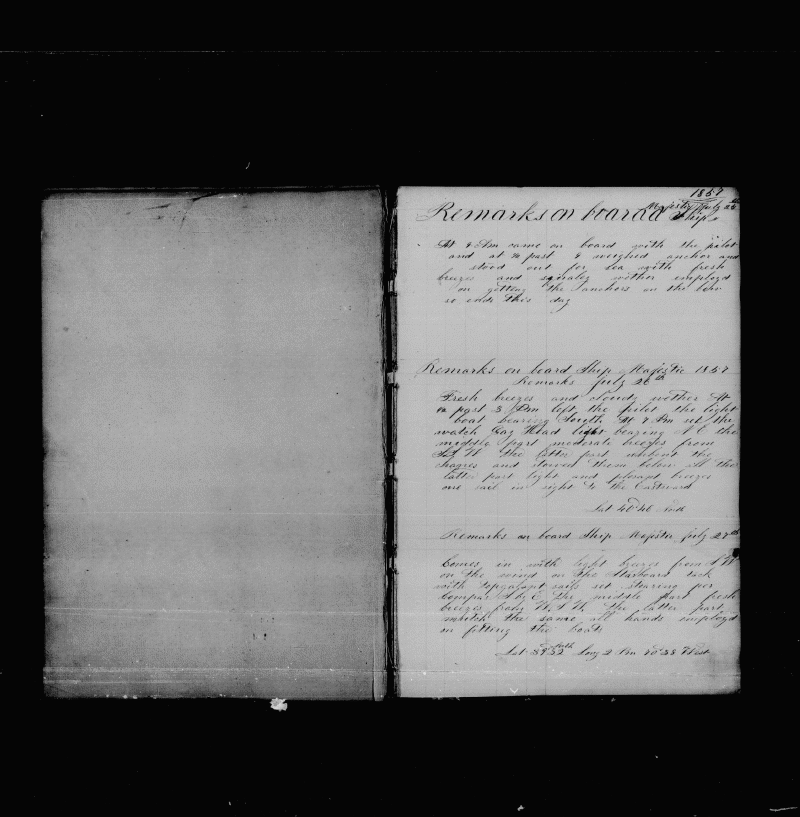 1857
Majestic July 25th
Remarks on board Ship
At 2 Pm came on board with the pilot
and at ½ past 2 weighed anchor and
stood out for sea with fresh
breezes and squaley wether employd
on getting the anchors on the bow
so ends this day
Remarks on board Ship Majestic 1857
Remarks July 26th
Fresh breezes and cloudy wether At
½ past 3 Pm left the pilot the light
boat bearing South At 7 Pm set the
watch Gay Head light bearing N E the
middle part moderate breezes from
S S W the latter part unbent the
and stowed them below all the
latter part light and plesant breezes
one sail in sight to the Eastward
Lat 40 40 North
Remarks on board Ship Majestic July 27th
Comes in with light brezes from S W
on the wind on the Starboard tack
with topgalant sails set staring per
Compas S by E the middle part fresh
breezes from W S W the latter part
much the same all hands employd
in fitting the boats
North
Lat 39 32 Long 70 38 West